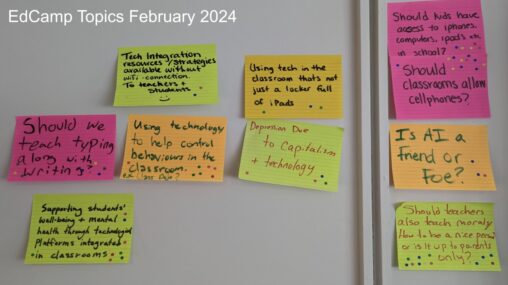 EdCamp Topics February 2024
Tech Integration
resources/Strategies
available without
wifi-connection.
To teachers +
Students
Using tech in the
classroom thats not
just a locker full
of iPads
Should kids have
access to iphones,
computers, ipads etc
in school?
Should
classrooms allow
cellphones?
Should we
teach typing
along with
writing?
Using technology
to help control
behaviours in the
classroom.
ex. Class Dojo?
Depression Due
to Capitalism
+ technology
Is AI a
friend or
Foe?
Supporting students'
well-being + mental
health through technological
Platforms integrated
in classrooms
Should teachers
also teach morals,
How to be a nice person
or is it up to parents
only?